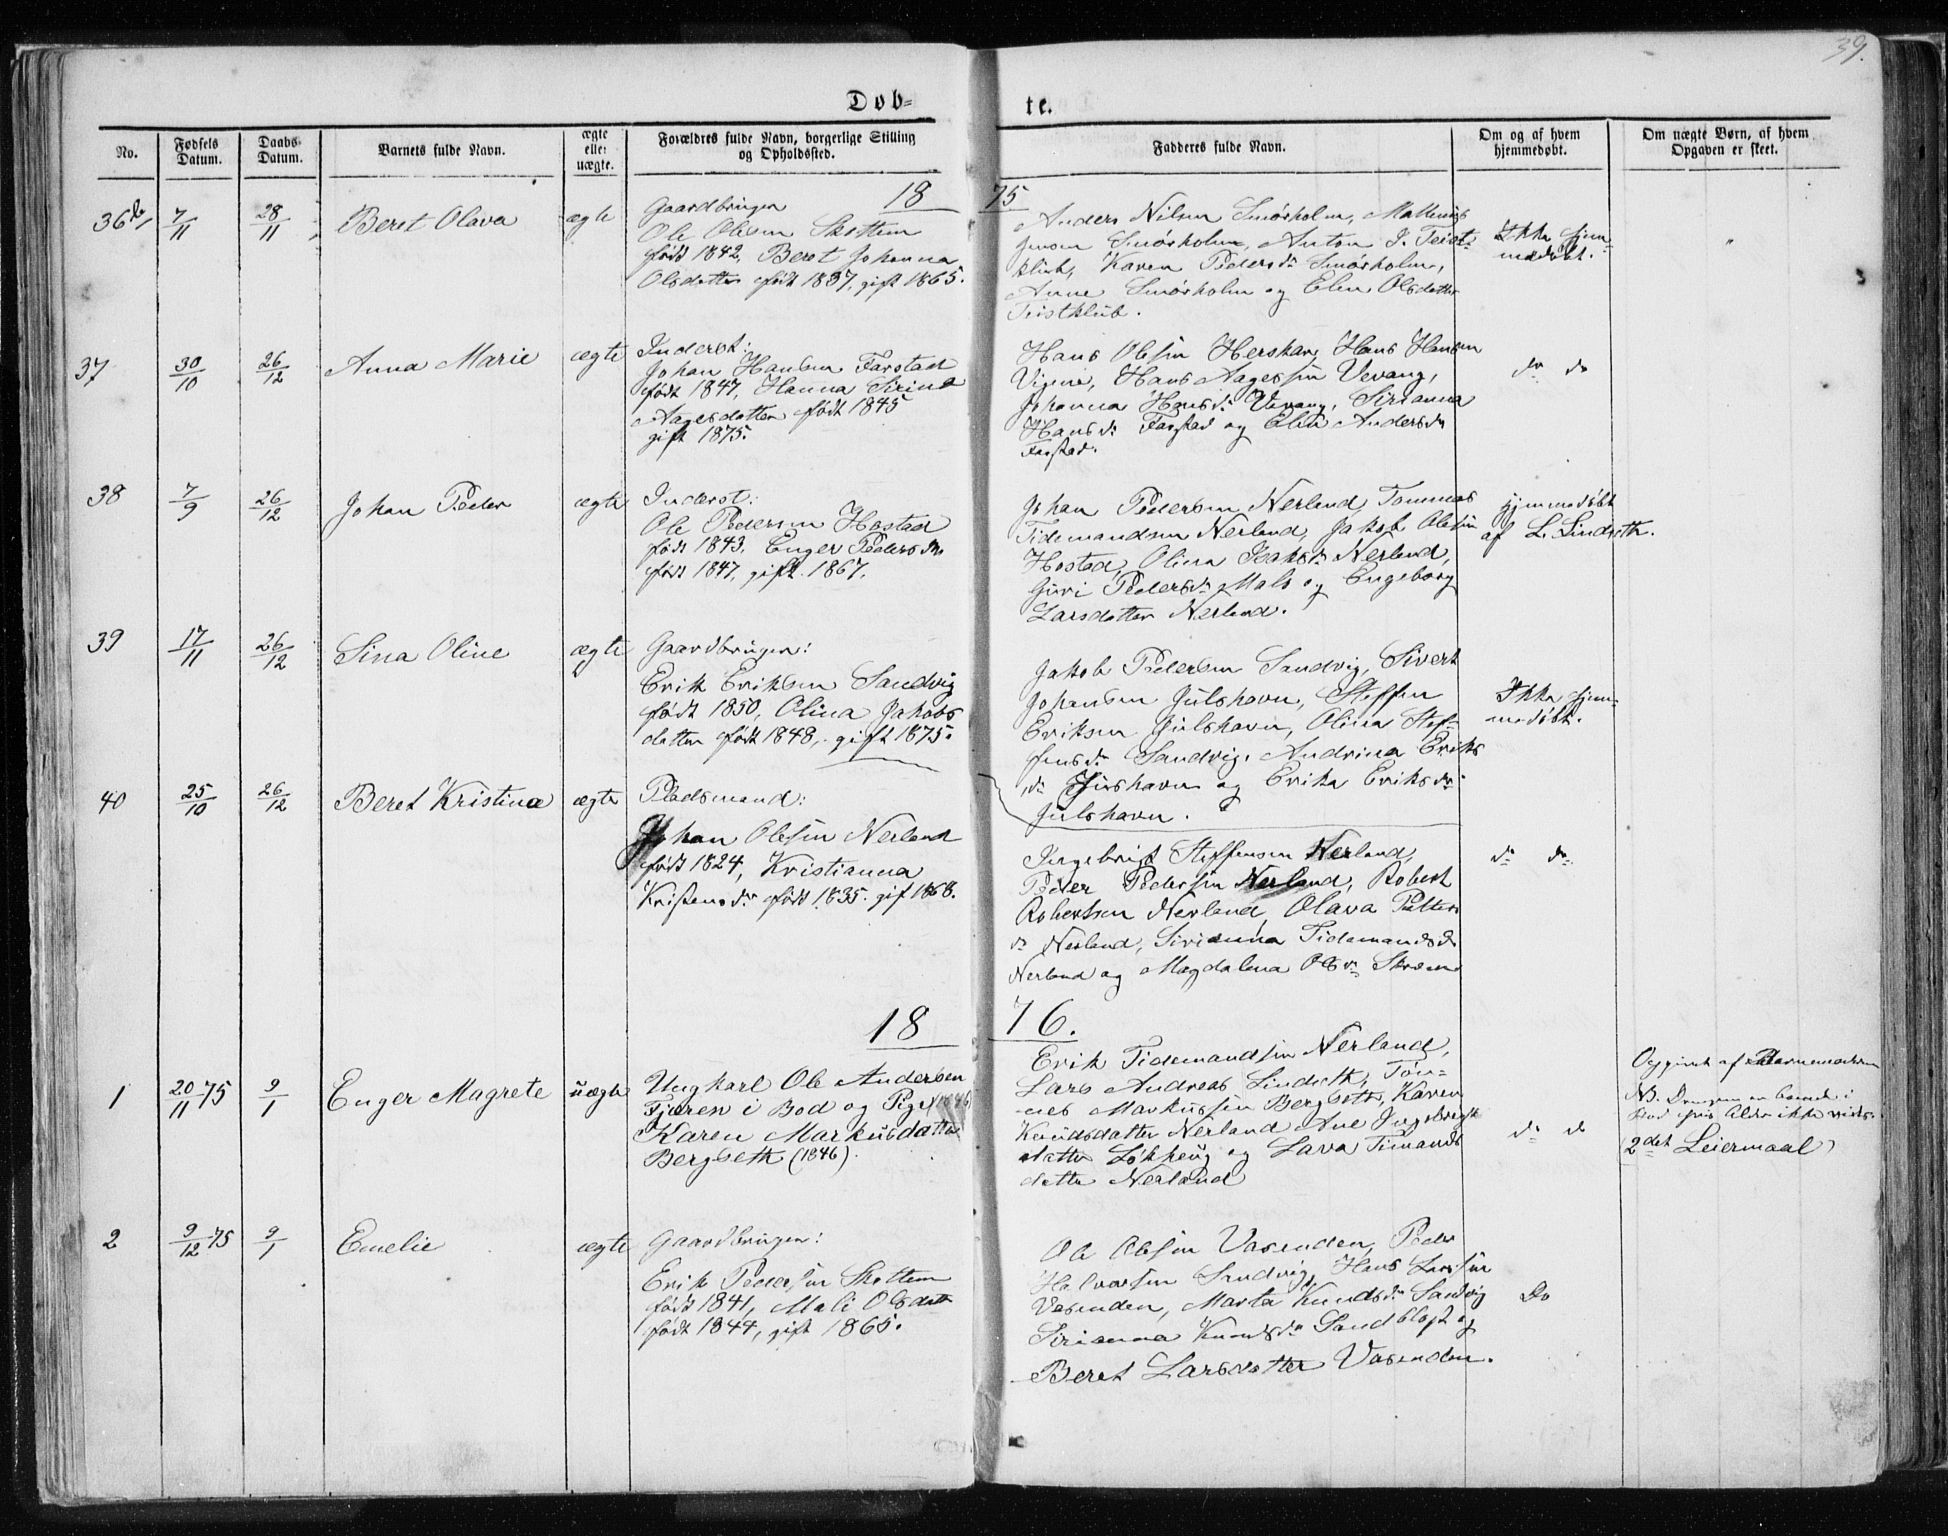 39.
Døb-
te.
No.
Fødsels
Datum.
Daabs-
Datum.
Barnets fulde Navn.
ægte
eller
uægte.
Forældres fulde Navn, borgerlige Stilling
og Opholdssted.
Fadderes fulde Navn.
Om og af hvem
hjemmedøbt.
Om uægte Børn, af hvem
Opgaven er skeet.
18
75
36
7/11
28/11
Beret Olava
ægte
Gaardbruger
Ole Olesen Skottem
født 1842, Beret Johanna
Olsdatter født 1837, gift 1865.
Anders Nilsen Smørholm,
Jensen Smørholm, Anton J. Teist-
klub, Karen Pedersdr Smørholm,
Anne Smørholm og Elen Olsdatter
Teistklub.
Ikke hjem-
medøbt.
37
30/10
26/12
Anna Marie
ægte
Inderst:
Johan Hansen Farstad
født 1847, Hanna Sirina
Aagesdatter født 1845
gift 1875.
Hans Olesen Herskar, Hans Hansen
Vigene, Hans Aagessen Vevang,
Johanna Hansdr Vevang, Sirianna
Hansdr Farstad og Elen Andersdr
Farstad.
do do
38
7/9
26/12
Johan Peder
ægte
Inderst:
Ole Pedersen Hostad
født 1843, Enger Pedersdr
født 1847, gift 1867.
Johan Pedersen Nerland, Tommas
Tidemandsen Nerland, Jakob Olesen
Hostad, Olina Isaksdr Nerland,
Guri Pedersdr Male og Engeborg
Larsdatter Nerland.
hjemmedøbt
af L. Lindseth.
39
17/11
26/12
Sina Oline
ægte
Gaardbruger:
Erik Eriksen Sandvig
født 1850, Olina Jakobs
datter født 1848, gift 1875.
Jakob Pedersen Sandvig, Sivert
Johansen Julshavn, Steffen
Eriksen Julshavn, Olina Stef-
fensdr Sandvig, Andrina Eriks
dr Julshavn og Erika Eriksdr
Julshavn.
Ikke hjem-
medøbt.
40
25/10
26/12
Beret Kristina
ægte
Pladsmand:
Johan Olesen Nerland
født 1824, Kristianna
Kristensdr født 1835. gif 1868.
Ingebrigt Steffensen Nerland,
Peder Pedersen Nerland, Robert
Robertsen Nerland, Olava Petters
dr Nerland, Sirianna Tidemandsdr
Nerland og Magdalena Olsdr
dr do
18
76.
1
20/11 75
9/1
Enger Magrete
uægte
Ungkarl Ole Andersen
Tjæren i Bod og Pige (1846)
Karen Markusdatter
Bergseth (1846).
Erik Tidemandsen Nerland,
Lars Andreas Lindseth, Tøn-
nes Markussen Bergseth, Karen
Knudsdatter Nerland Ane Ingebrigt
datter Løkheug og Lava Timands
datter Nerland
do do
Opgivet af Barnemoderen
NB. Drengen er i
Bod hvis Alder ikke vides.
(2det Leiermaal)
2
9/12 75
9/1
Emelie
ægte
Gaardbruger:
Erik Pedersen Skottem
født 1841, Mali Olsdatt
født 1844, gift 1865.
Ole Olesen Vasenden, Peder
Halvorsen Sandvig, Hans Larssen
Vasenden, Marta Knudsdr Sandvig
Sirianna Knudsdr Sandblast og
Beret Larsdatter Vasenden.
Do